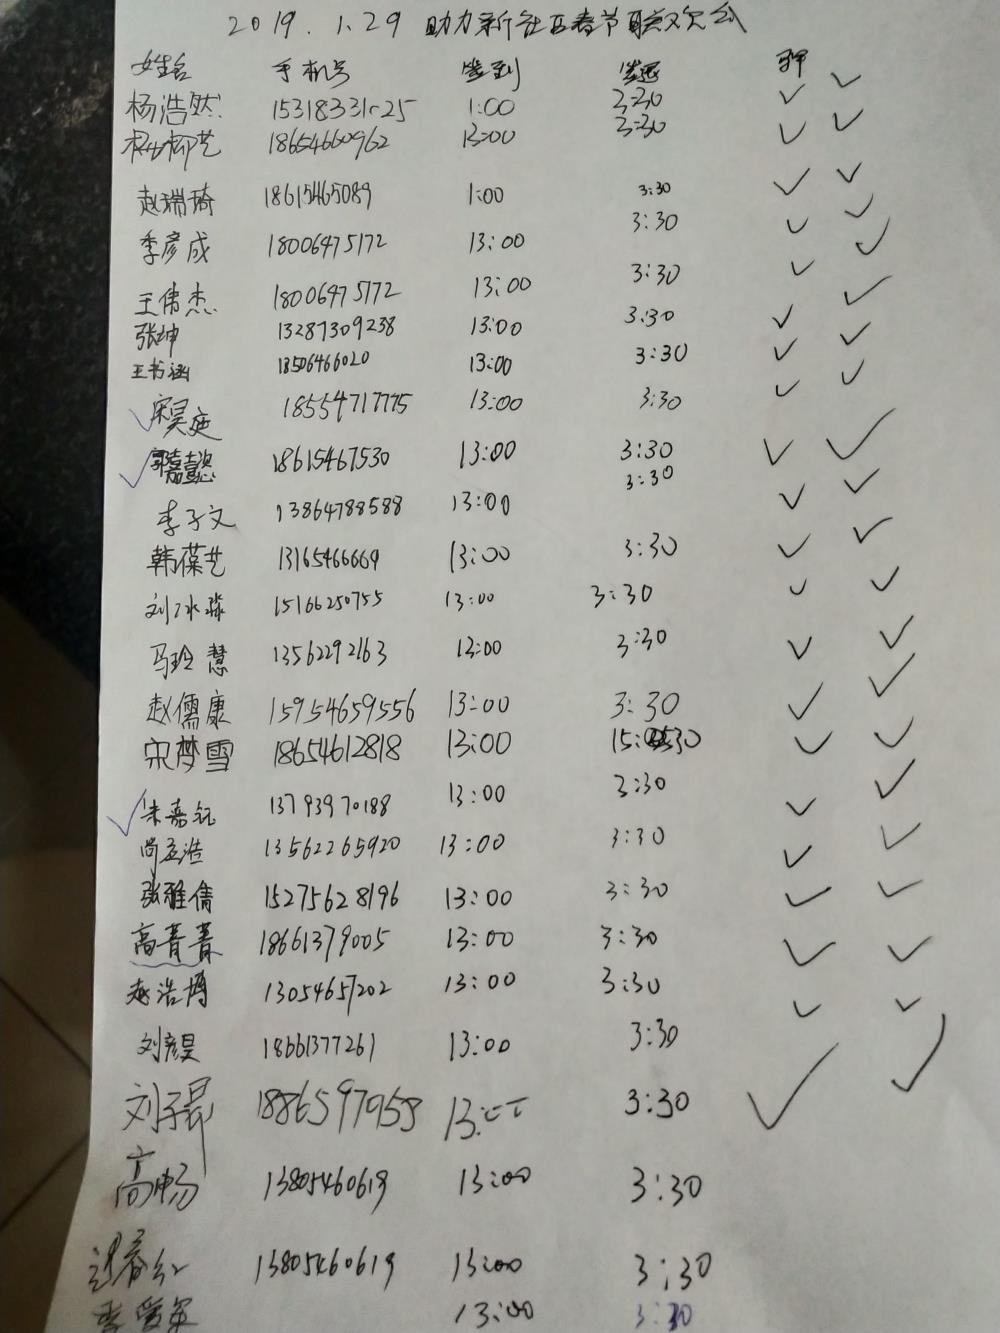 2019.1.29 助力新社区春节联欢会
姓名 手机号 签到 签退
杨浩然 15318331125 1:00 3:30 ✓ ✓
柳艺 18654660962 13:00 3:30 ✓ ✓
赵瑞琦 18615465089 1:00 3:30 ✓ ✓
季彦成 18006475172 13:00 3:30 ✓ ✓
王伟杰 18006475172 13:00 3:30 ✓ ✓
张坤 13287309238 13:00 3:30 ✓ ✓
王书涵 13506466020 13:00 3:30 ✓ ✓
✓ 宋昊庭 18554717775 13:00 3:30 ✓ ✓
✓ 郭嘉懿 18615467530 13:00 3:30 ✓ ✓
李子文 13864788588 13:00 3:30 ✓ ✓
韩葆艺 13165466669 13:00 3:30 ✓ ✓
刘冰淼 15166250755 13:00 3:30 ✓ ✓
马玲慧 13562292163 13:00 3:30 ✓ ✓
赵儒康 15954659556 13:00 3:30 ✓ ✓
宋梦雪 18654612818 13:00 15:30 ✓ ✓
✓ 朱嘉钰 13793970188 13:00 3:30 ✓ ✓
尚孟浩 13562265920 13:00 3:30 ✓ ✓
张雅倩 15275628196 13:00 3:30 ✓ ✓
高菁菁 18661379005 13:00 3:30 ✓ ✓
赵浩博 13054657202 13:00 3:30 ✓ ✓
刘彦昊 18661377261 13:00 3:30
刘子昂 18865979953 13:00 3:30 ✓ ✓
高畅 13805460619 13:00 3:30
春红 13805460619 13:00 3:30
李爱英 13:00 3:30